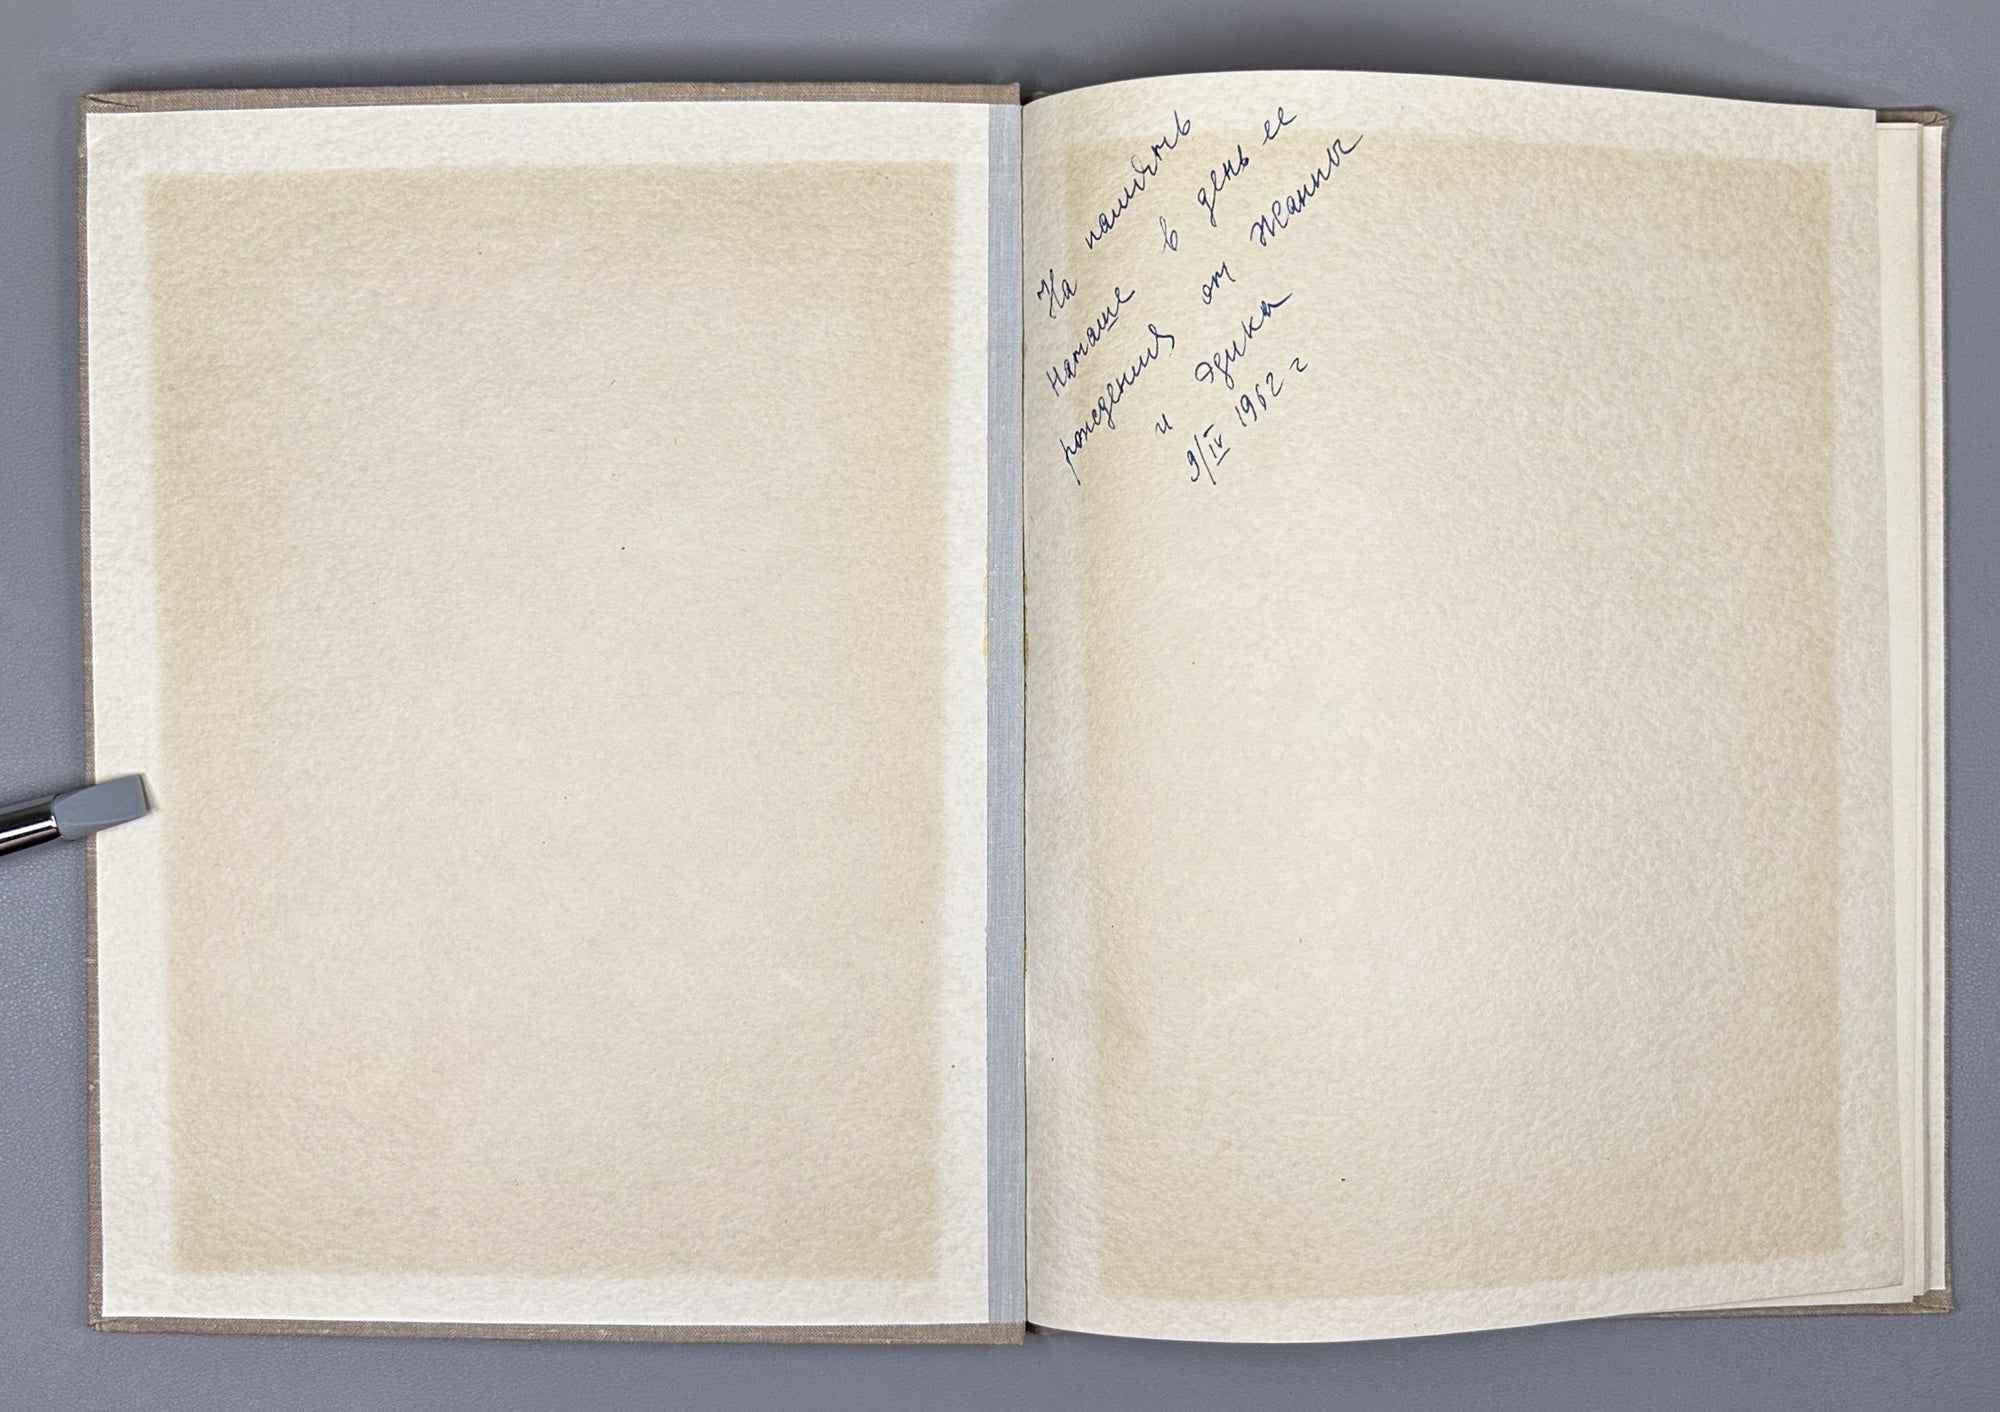 На память
Наташе в день ее
рождения от Жанны
и Эдика
9/IV 1962 г